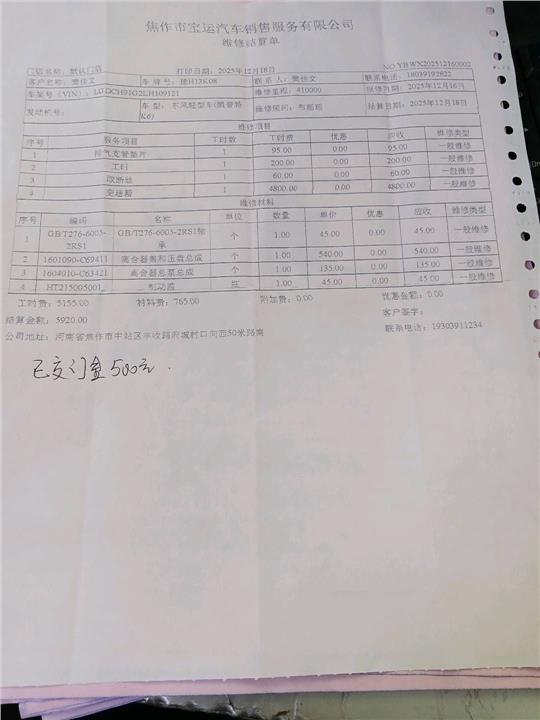 焦作市宝运汽车销售服务有限公司
维修结算单
门店名称：默认门店 打印日期：2025年12月18日 NO.YHWX202512160002
客户名称：樊佳文 车牌号：豫H13K08 联系人：樊佳文 联系电话：18039192822
车架号（VIN）：LGDCH91G2LH109121 维修里程：410000 报修日期：2025年12月16日
发动机号： 车型：东风轻型车(凯普特K6) 维修顾问： 结算日期：2025年12月18日
维修项目
序号 服务项目 工时数 工时费 优惠 应收 维修类型
1 排气支管垫片 1 95.00 0.00 95.00 一般维修
2 工时 1 200.00 0.00 200.00 一般维修
3 取断丝 1 60.00 0.00 60.00 一般维修
4 变速箱 1 4800.00 0.00 4800.00 一般维修
维修材料
序号 编码 名称 单位 数量 单价 优惠 应收 维修类型
1 GB/T276-6003-2RS1 GB/T276-6003-2RS1轴承 个 1.00 45.00 0.00 45.00 一般维修
2 1601090-C69411 离合器离和压盘总成 个 1.00 540.00 0.00 540.00 一般维修
3 1604010-C63421 离合器总泵总成 个 1.00 135.00 0.00 135.00 一般维修
4 HT215005001 制动液 1.00 45.00 0.00 45.00 一般维修
工时费：5155.00 材料费：765.00 附加费：0.00 优惠金额：0.00
结算金额：5920.00 客户签字：
公司地址：河南省焦作市中站区丰收路府城村口向西50米路南 联系电话：19303911234
已交订金500元.